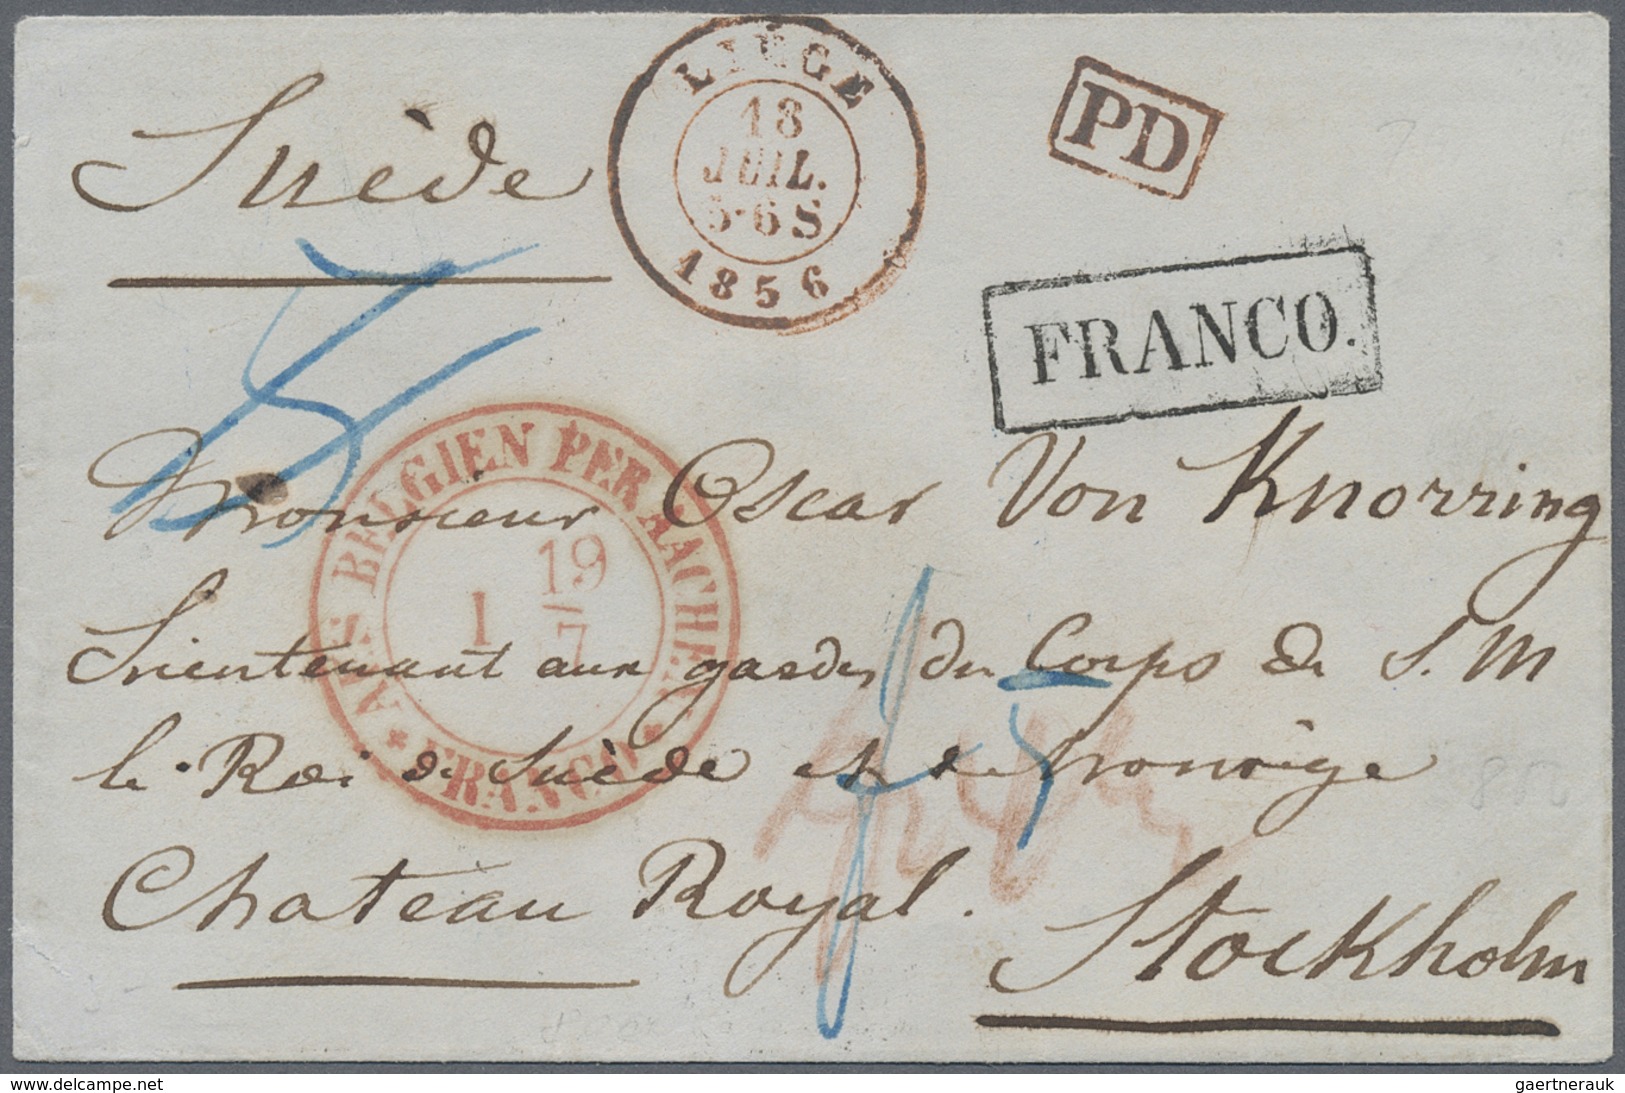 LIÈGE
18
JUIL.
5-6 S
1856
PD
Suède
FRANCO.
AUS BELGIEN PER AACHEN
19
1
7
* FRANCO *
Monsieur Oscar Von Knorring
Lieutenant aux gardes du Corps de S. M
le Roi de Suède et de Norwège
Chateau Royal.
Stockholm
gaertnerauk // delcampe.net